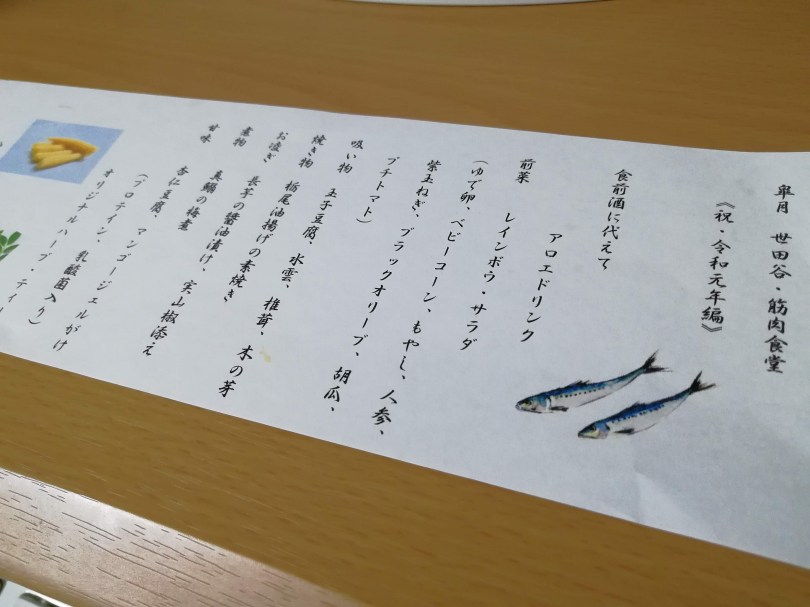 皐月 世田谷・筋肉食堂
《祝・令和元年編》
食前酒に代えて
アロエドリンク
前菜 レインボウ・サラダ
(ゆで卵、ベビーコーン、もやし、人参、
紫玉ねぎ、ブラックオリーブ、胡瓜、
プチトマト)
吸い物 玉子豆腐、水雲、椎茸、木の芽
焼き物 栃尾油揚げの素焼き
お凌ぎ 長芋の醤油漬け、実山椒添え
煮物 真鰯の梅煮
甘味 杏仁豆腐、マンゴージェルがけ
(プロテイン、乳酸菌入り)
オリジナルハーブ・ティー